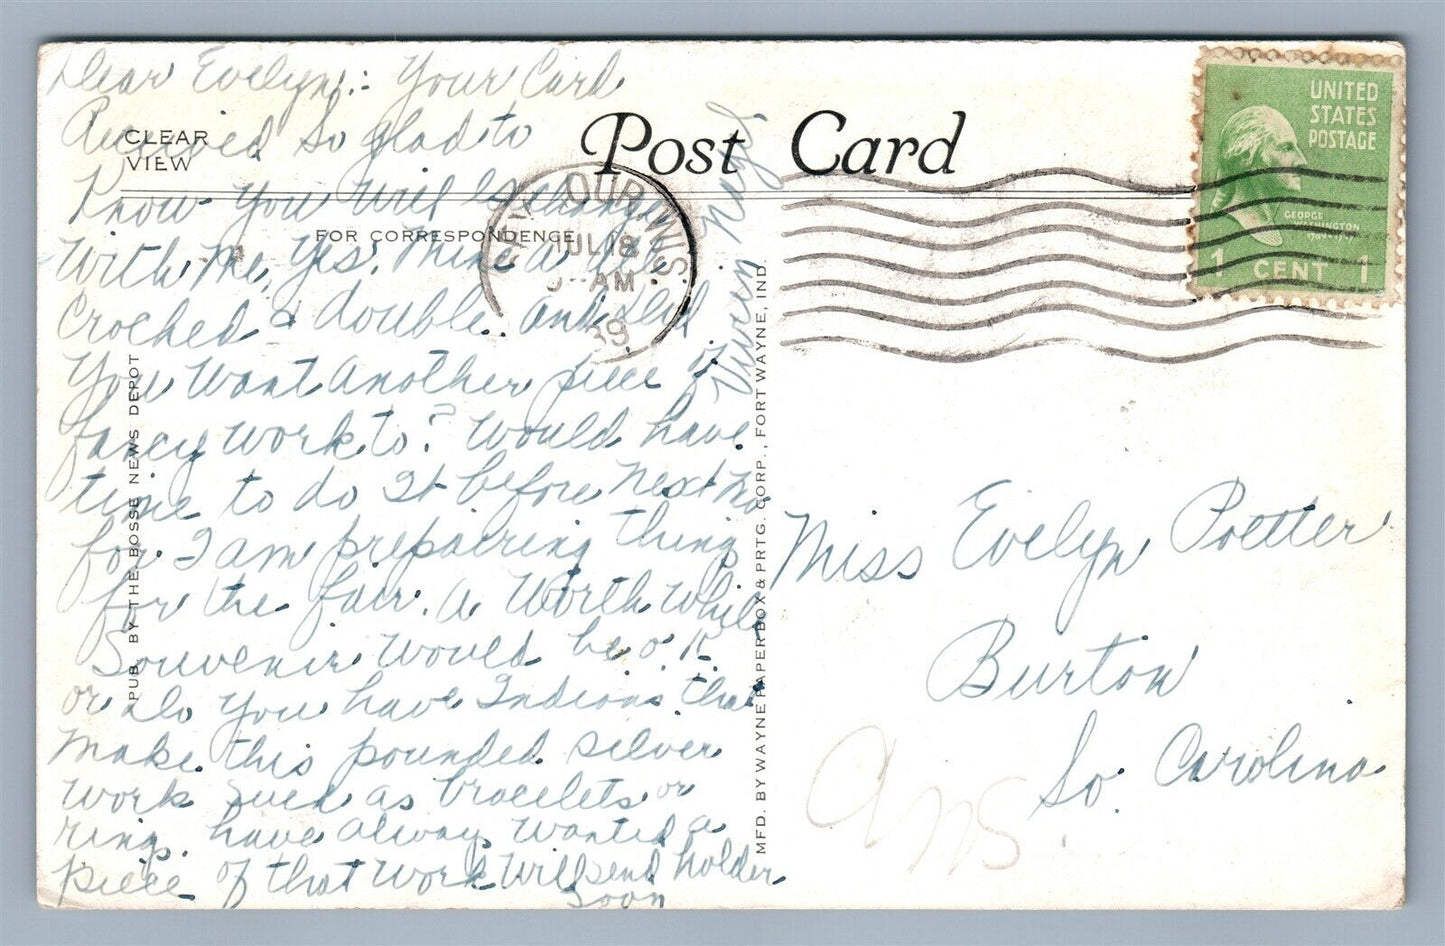 Dear Evelyn: Your Card
Received So glad to
Know You Will Exchange
With Me, Yes. Mine a
Croched & double. and did
You Want another piece of
fancy work to? Would have
time to do It before next Mo
for I am preparing things
for the fair. a Worth While
Souvenir would be o.K.
or do You have Indians that
Make this pounded silver
Work such as bracelets or
ring. have alway wanted a
piece of that Work Will send holder
soon
CLEAR
VIEW
Post Card
FOR CORRESPONDENCE
JUL 18
AM
WIS.
UNITED
STATES
POSTAGE
GEORGE
WASHINGTON
1 CENT 1
PUB. BY THE BOSSE NEWS DEPOT
MFD. BY WAYNE PAPER BOX & PRTG. CORP., FORT WAYNE, IND.
Miss Evelyn Poetter
Burton
So. Carolina
Ans